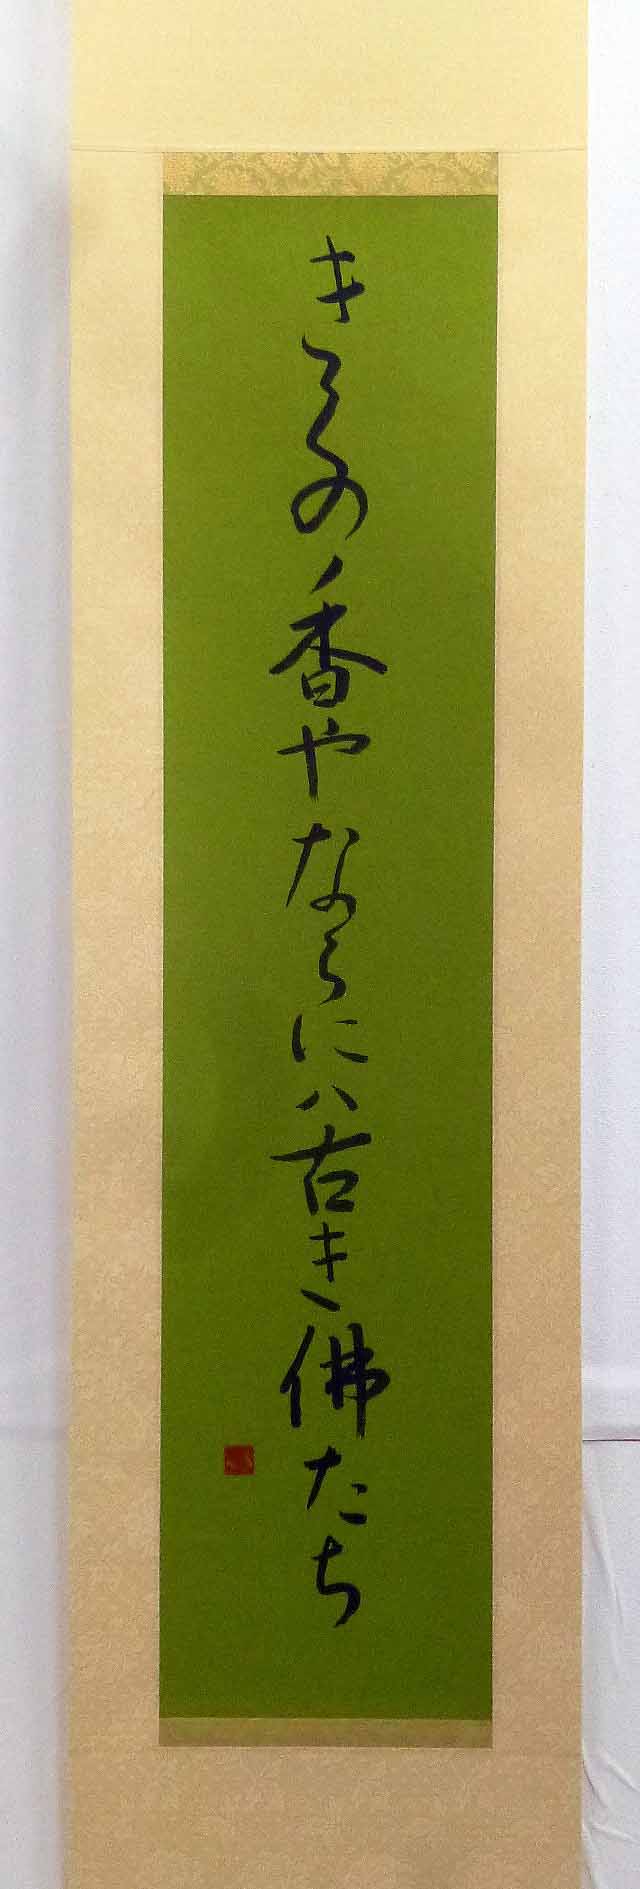 きくの香やならには古き佛たち